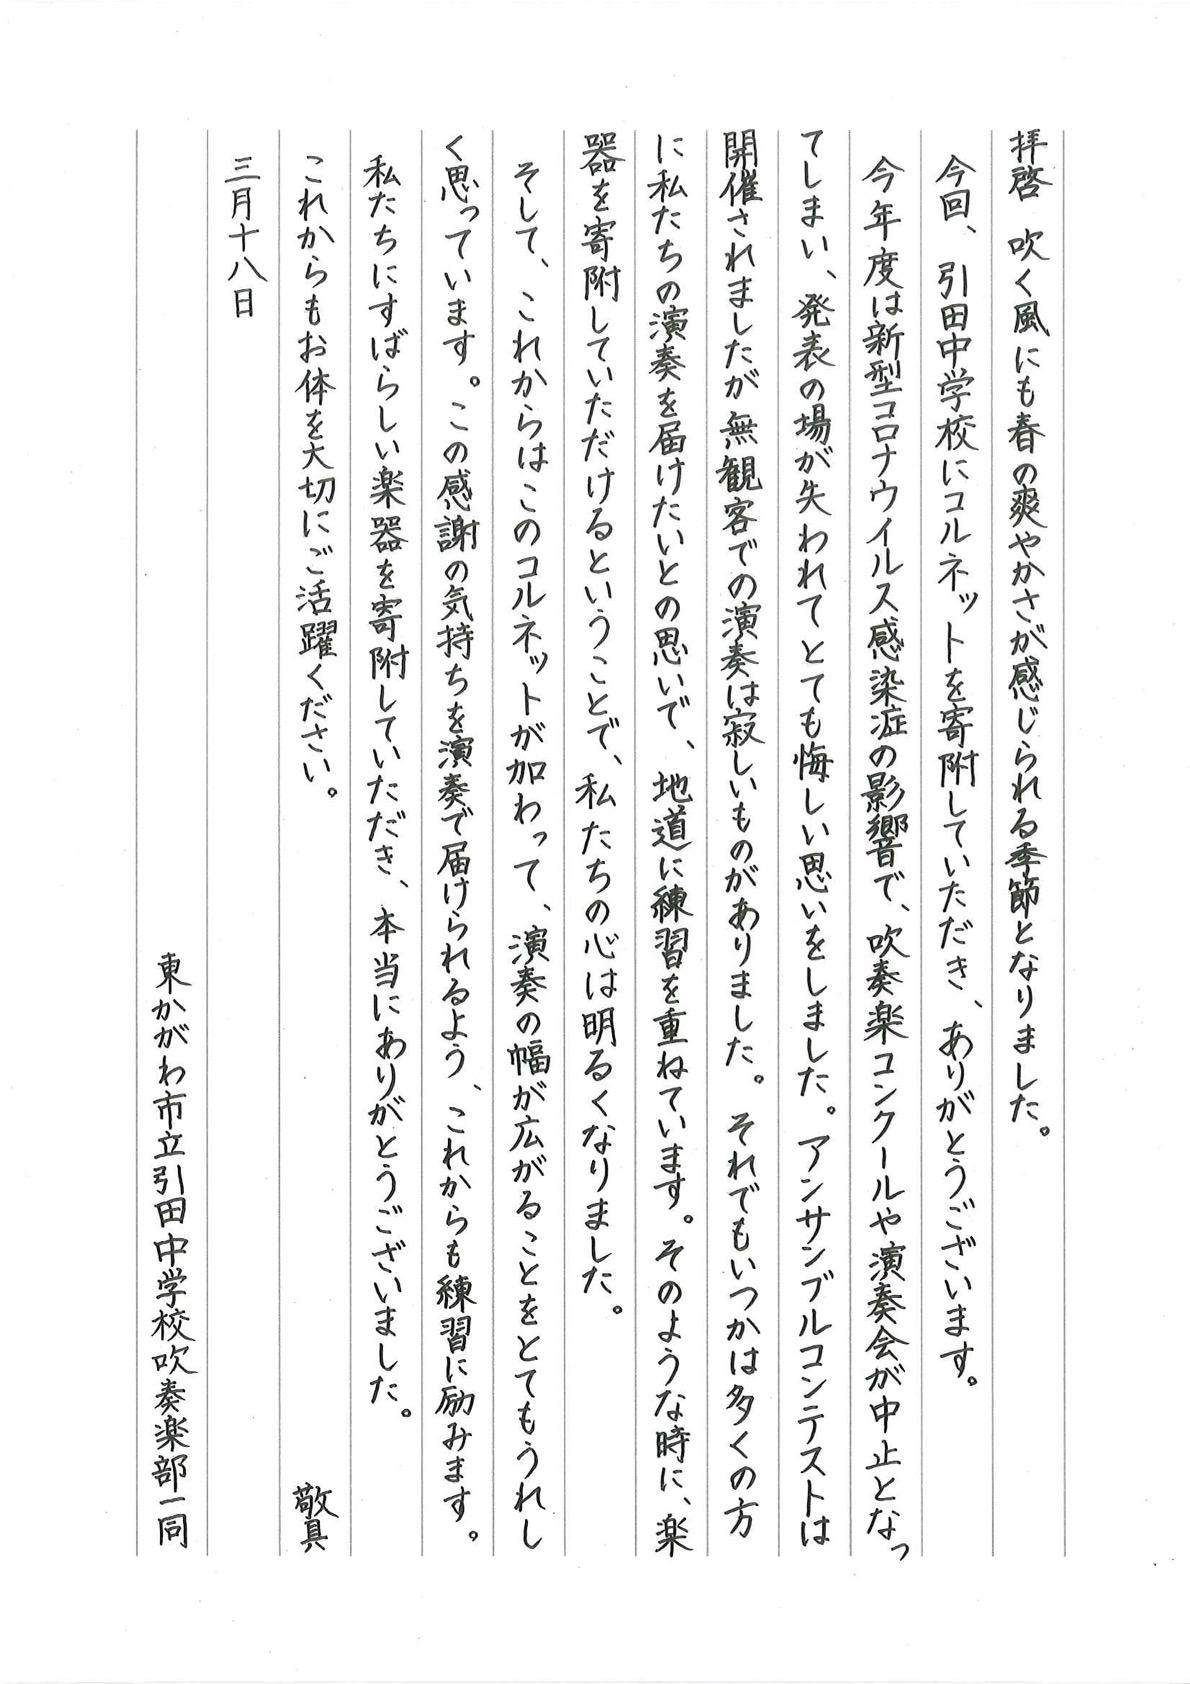 拝啓　吹く風にも春の爽やかさが感じられる季節となりました。
今回、引田中学校にコルネットを寄附していただき、ありがとうございます。
今年度は新型コロナウイルス感染症の影響で、吹奏楽コンクールや演奏会が中止となっ
てしまい、発表の場が失われてとても悔しい思いをしました。アンサンブルコンテストは
開催されましたが無観客での演奏は寂しいものがありました。それでもいつかは多くの方
に私たちの演奏を届けたいとの思いで、地道に練習を重ねています。そのような時に、楽
器を寄附していただけるということで、私たちの心は明るくなりました。
そして、これからはこのコルネットが加わって、演奏の幅が広がることをとてもうれし
く思っています。この感謝の気持ちを演奏で届けられるよう、これからも練習に励みます。
私たちにすばらしい楽器を寄附していただき、本当にありがとうございました。
これからもお体を大切にご活躍ください。　敬具
三月十八日
東かがわ市立引田中学校吹奏楽部一同